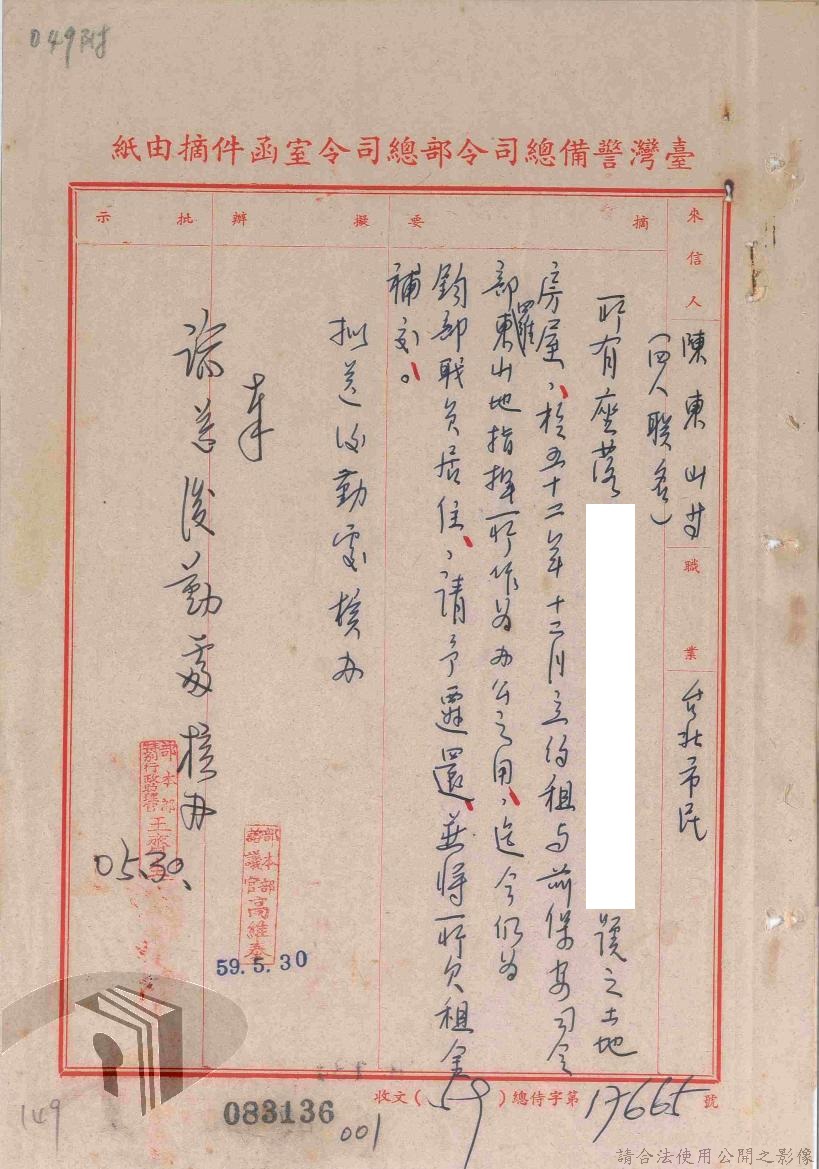 049附
臺灣警備總司令部總司令室函件摘由紙
來信人
陳東山等
(四人聯名)
職業
台北市民
摘要
所有座落
號之土地
房屋,於五十二年十二月立約租与前保安司令
部東山地指揮所作為办公之用,迄今仍為
羅
鈞部職員居住,請予遷還,並將所欠租金
補交。
擬辦
拟送後勤處核办
部本部
諮議官高維泰
59.5.30
批示
奉
諭送後勤處核办
部本部
王
0530
收文(59)總侍字第17665號
083136
001
149
請合法使用公開之影像